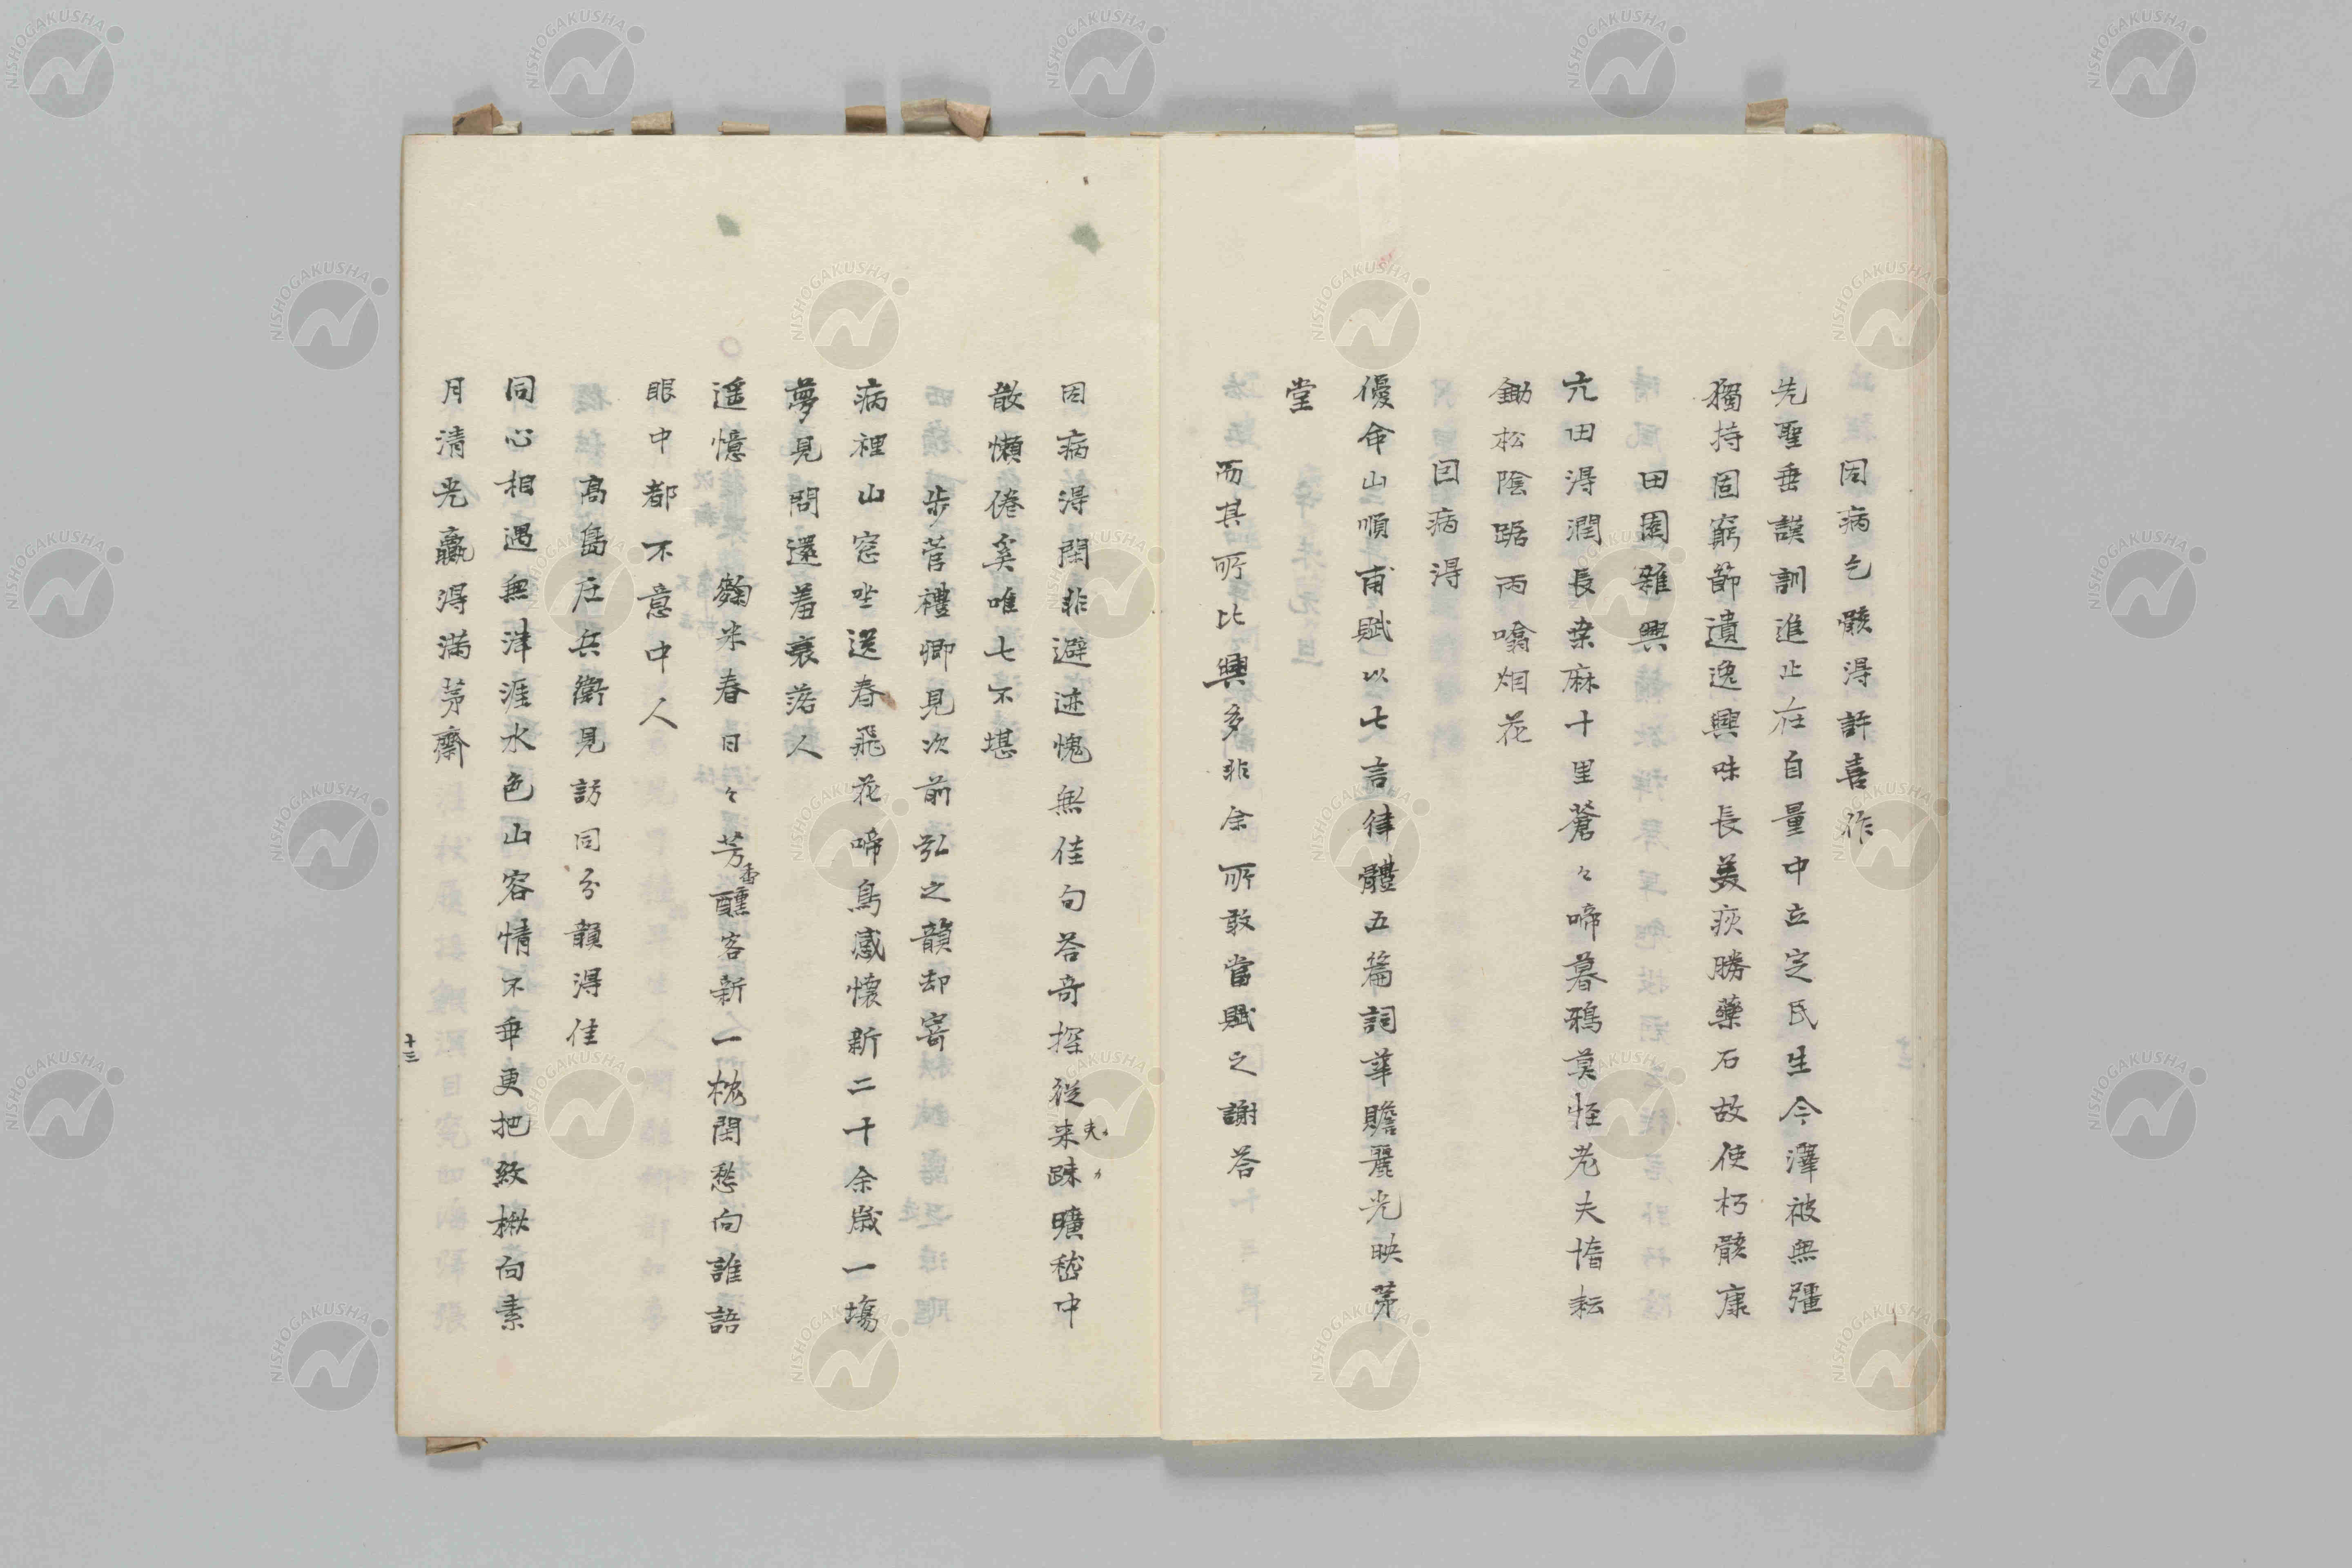 因病乞骸得許喜作
先聖垂謨訓進止在自量中立定民生今澤被無彊
獨持固窮節遺逸興味長美疢勝藥石故使朽骸康
田園雜興
亢田得潤長桒麻十里蒼々啼暮鴉莫怪老夫惰耘
鋤松陰踞丙噏烟花
因病得
優命山順甫賦以七言律體五篇詞華贍麗光映茅
堂
而其所比興多非余所敢當賦之謝答
因病得閑非避迹愧無佳句荅奇探從来踈曠嵇中
夫
散懶倦奚唯七不堪
步菅禮卿見次前弘之韻却寄
病裡山窓坐送春飛花啼鳥感懷新二十余歳一塲
夢見問還羞衰落人
遥憶麹米春日々芳醺客新一枕閑愁向誰語
香
眼中都不意中人
高島庄兵衛見訪同分韻得佳
同心相遇無津涯水色山容情不乖更把紋楸向素
月清光贏得満茅齋
十三
NISHOGAKUSHA